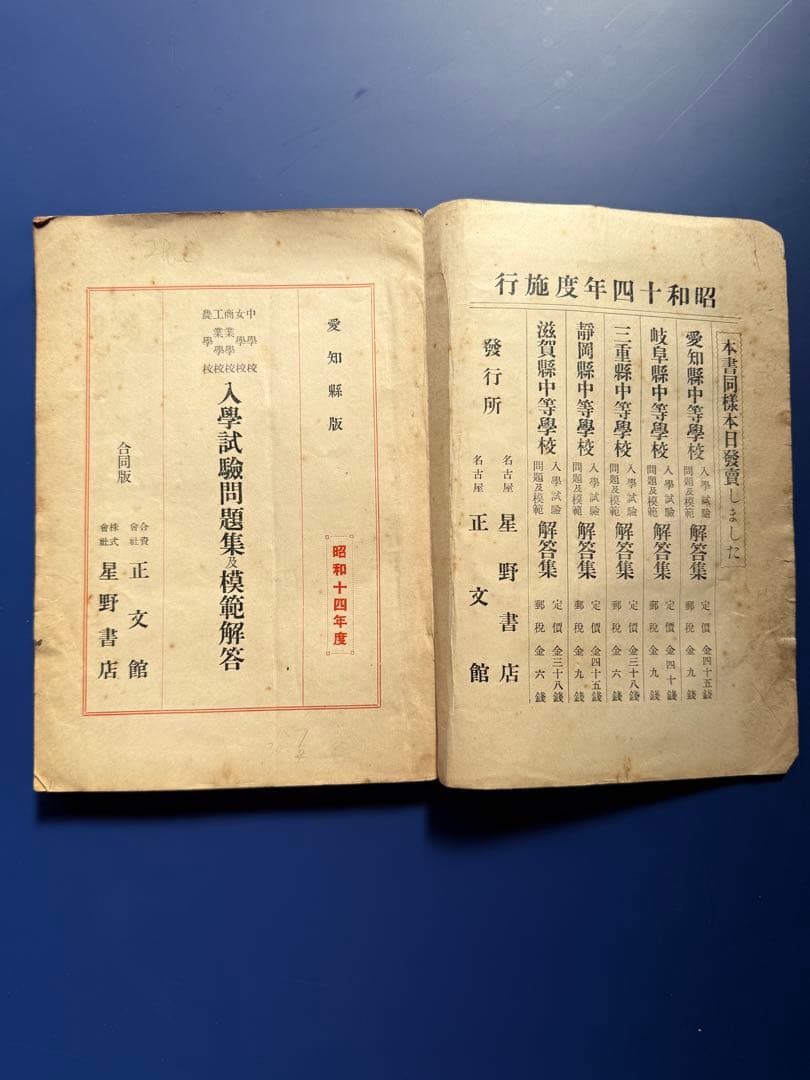 昭和十四年度施行
本書同樣本日發賣しました
愛知縣中等學校 入學試驗問題及模範 解答集 定價金四十五錢 郵稅金九錢
岐阜縣中等學校 入學試驗問題及模範 解答集 定價金四十錢 郵稅金九錢
三重縣中等學校 入學試驗問題及模範 解答集 定價金三十八錢 郵稅金六錢
靜岡縣中等學校 入學試驗問題及模範 解答集 定價金四十五錢 郵稅金九錢
滋賀縣中等學校 入學試驗問題及模範 解答集 定價金三十八錢 郵稅金六錢
發行所
名古屋 星野書店
名古屋 正文館
愛知縣版
昭和十四年度
中學校
女學校
商業學校
工業學校
農學校
入學試驗問題集及模範解答
合同版
合資會社 正文館
株式會社 星野書店